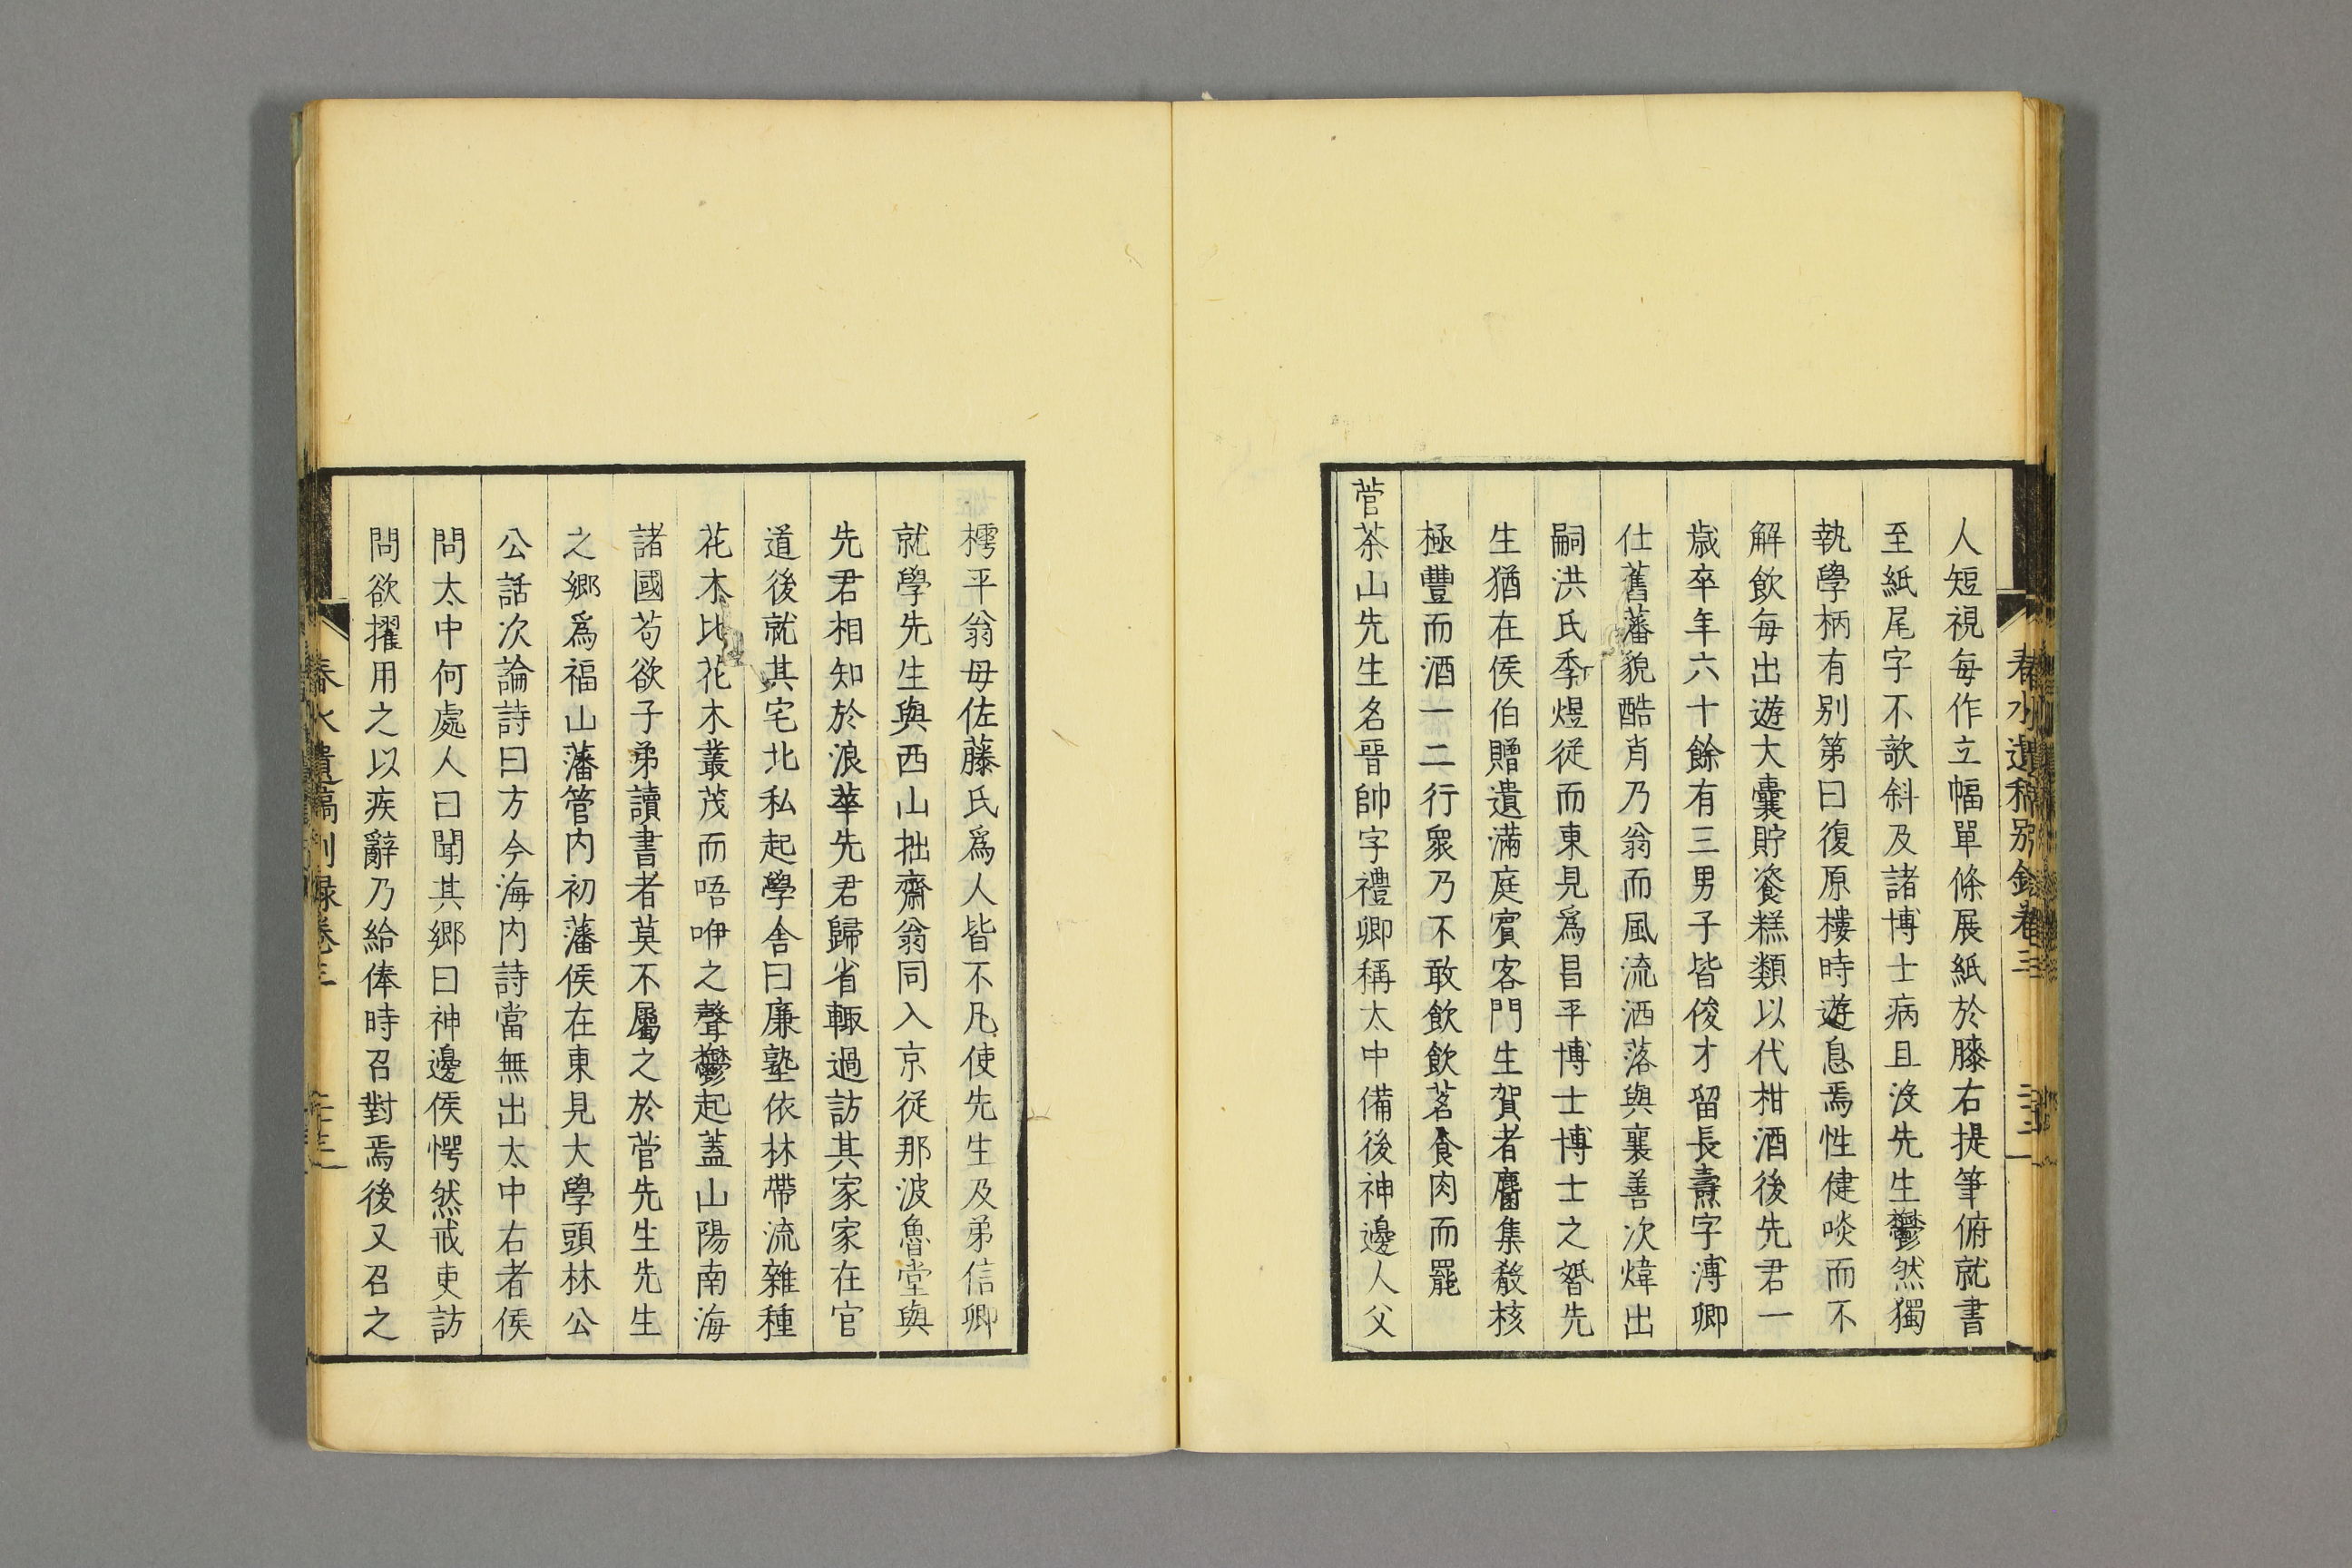 春水遺稿別錄卷三
人短視每作立幅單條展紙於膝右提筆俯就書
至紙尾字不欹斜及諸博士病且沒先生鬱然獨
執學柄有別第曰復原樓時遊息焉性健啖而不
解飲每出遊大囊貯餈糕類以代柑酒後先君一
歲卒年六十餘有三男子皆俊才留長燾字溥卿
仕舊藩貌酷肖乃翁而風流洒落與襄善次煒出
嗣洪氏季煜從而東見爲昌平博士博士之聟先
生猶在侯伯贈遺滿庭賓客門生賀者麕集殽核
極豐而酒一二行衆乃不敢飲飲茗食肉而罷
菅茶山先生名晉帥字禮卿稱太中備後神邊人父
樗平翁母佐藤氏爲人皆不凡使先生及弟信卿
就學先生與西山拙齋翁同入京從那波魯堂與
先君相知於浪華先君歸省輙過訪其家家在官
道後就其宅北私起學舍曰廉塾依林帶流雜種
花木比花木叢茂而唔咿之聲鬱起蓋山陽南海
諸國苟欲子弟讀書者莫不屬之於菅先生先生
之鄉爲福山藩管内初藩侯在東見大學頭林公
公話次論詩曰方今海内詩當無出太中右者侯
問太中何處人曰聞其鄉曰神邊侯愕然戒吏訪
問欲擢用之以疾辭乃給俸時召對焉後又召之
春水遺稿別録卷三